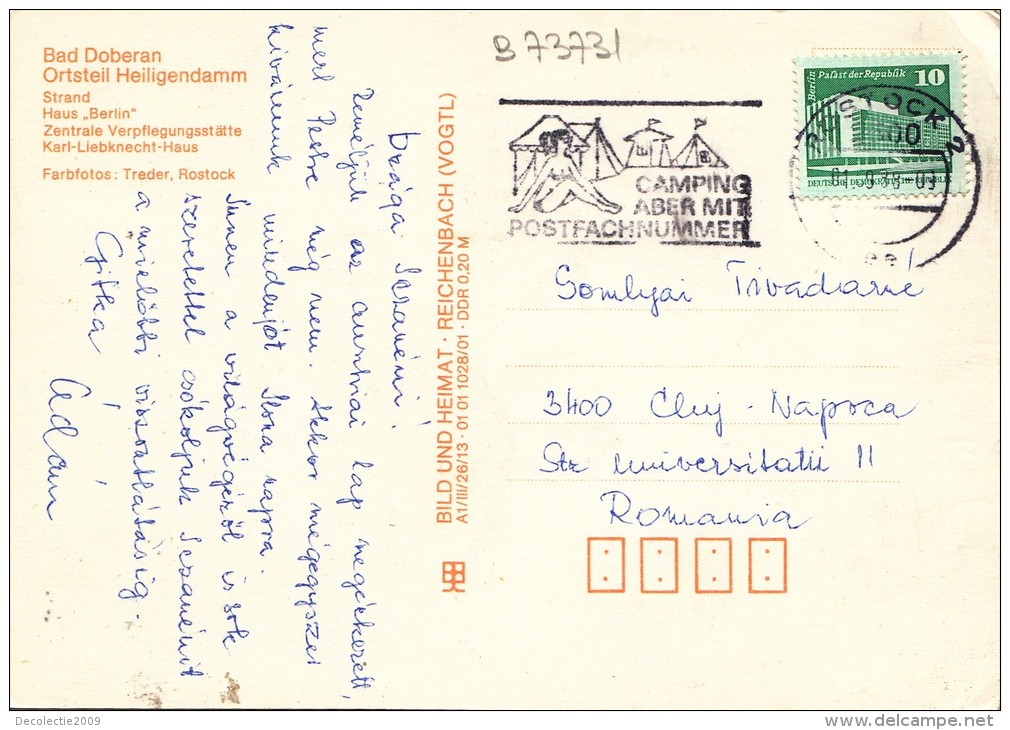 Bad Doberan
Ortsteil Heiligendamm
Strand
Haus „Berlin"
Zentrale Verpflegungsstätte
Karl-Liebknecht-Haus
Farbfotos: Treder, Rostock
Drága Szenéni!
Reméljük az ausztriai lap megérkezett,
mert Pestre még nem. Akkor mégegyszer
kivánunk mindenjót Ilona napra.
Innen a világvégéről is sok
szeretettel csókoljuk Szenénit
a mielőbbi viszontlátásig.
Gitka
Ádám
BILD UND HEIMAT · REICHENBACH (VOGTL)
A1/III/26/13 · 01 01 1028/01 · DDR 0,20 M
B 73731
CAMPING
ABER MIT
POSTFACHNUMMER
Berlin Palast der Republik 10
DEUTSCHE DEMOKRATISCHE REPUBLIK
ROSTOCK 2
Somlyai Tivadarné
3400 Cluj-Napoca
Str Universitatii 11
Romania
Decolectie2009
www.delcampe.net